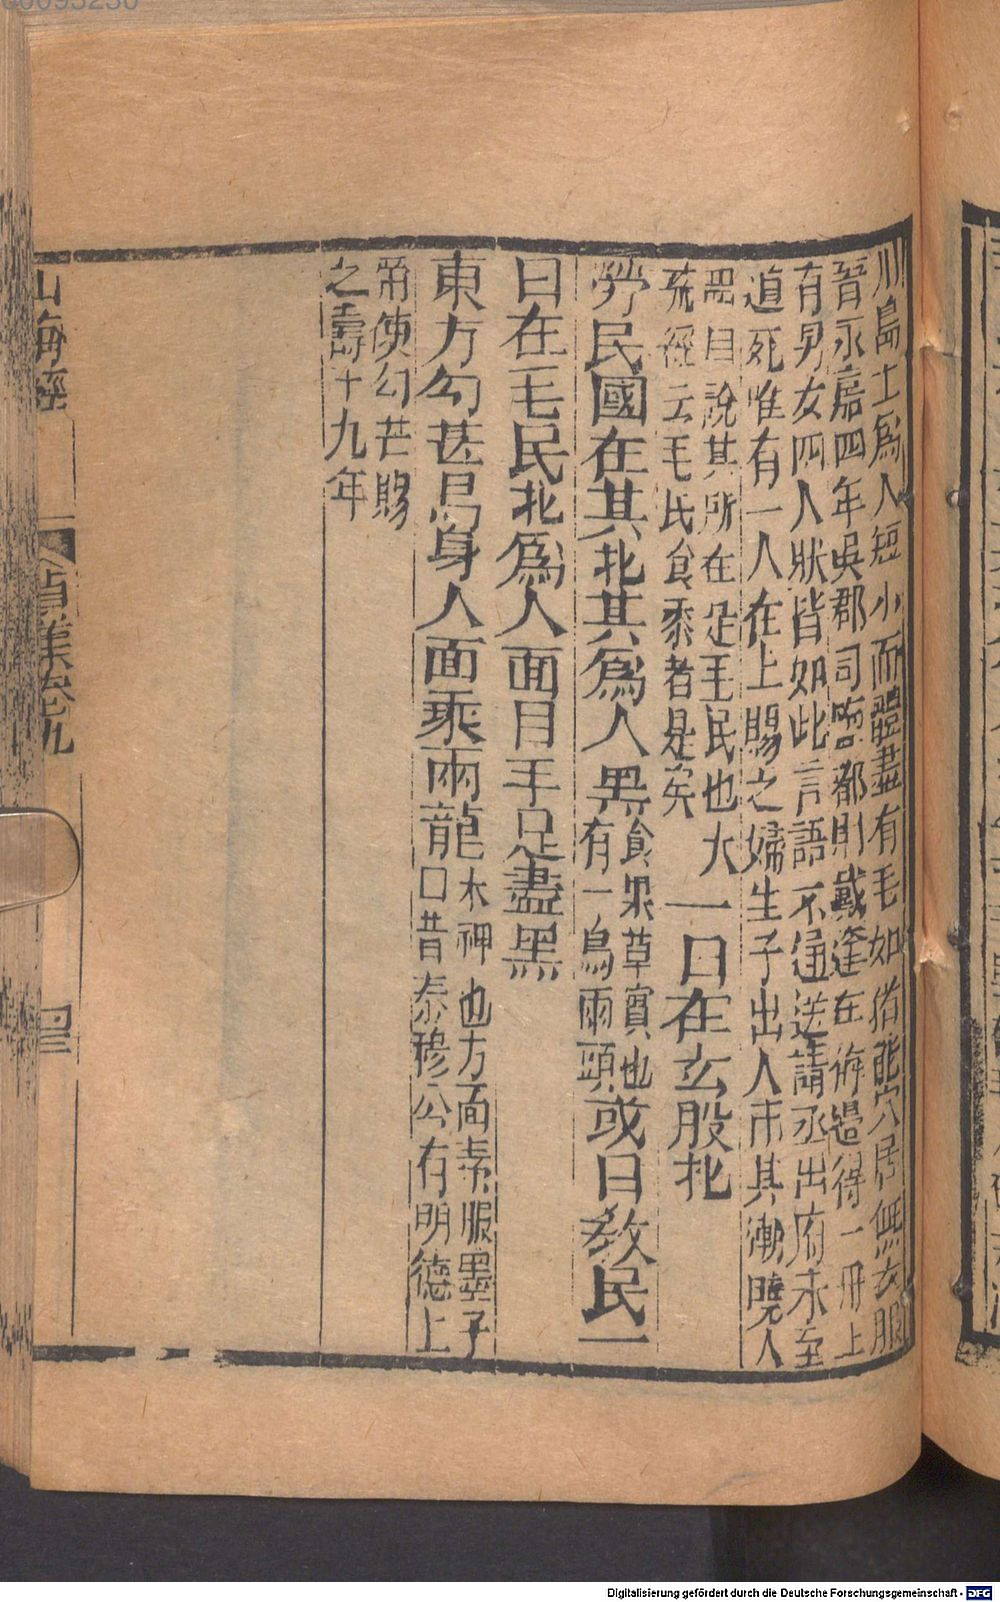 川島上爲人短小而體盡有毛如猪能穴居無衣服
晉永嘉四年吳郡司鹽都尉戴逢在海邊得一舟上
有男女四人狀皆如此言語不通送請丞出府未至
道死唯有一人在上賜之婦生子出入市其漸曉人
語自說其所在是毛民也大
荒經云毛民食黍者是矣
一曰在玄股北
勞民國在其北其爲人黑
食果草實也
有一鳥兩頭
或曰敎民一
曰在毛民北爲人面目手足盡黑
東方勾甚鳥身人面乘兩龍
木神也方面素服墨子
曰昔秦穆公有明德上
帝使勾芒賜
之壽十九年
山海經
卷九
Digitalisierung gefördert durch die Deutsche Forschungsgemeinschaft - DFG